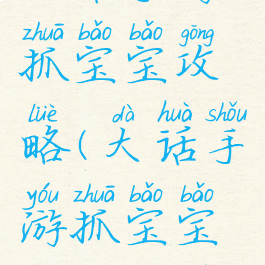 zhuā bǎo bǎo gōng
抓宝宝攻
lüè dà huà shǒu
略(大话手
yóu zhuā bǎo bǎo
游抓宝宝